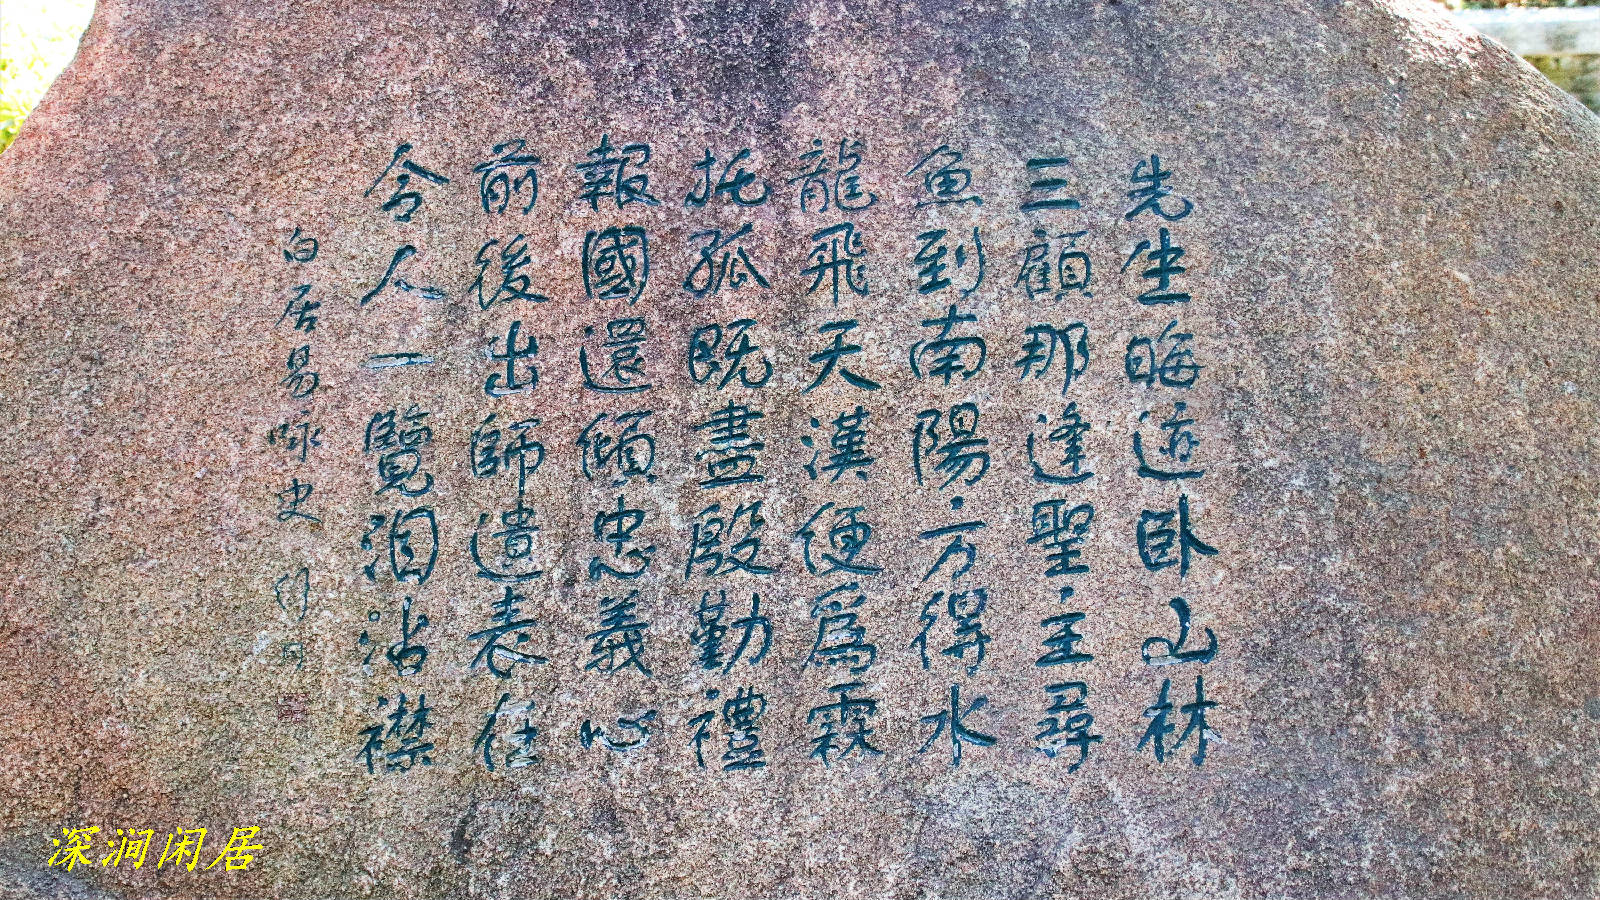 先生晦迹卧山林
三顧那逢聖主尋
魚到南陽方得水
龍飛天漢便為霖
托孤既盡殷勤禮
報國還傾忠義心
前後出師遺表在
令人一覽泪沾襟
白居易咏史
深涧闲居